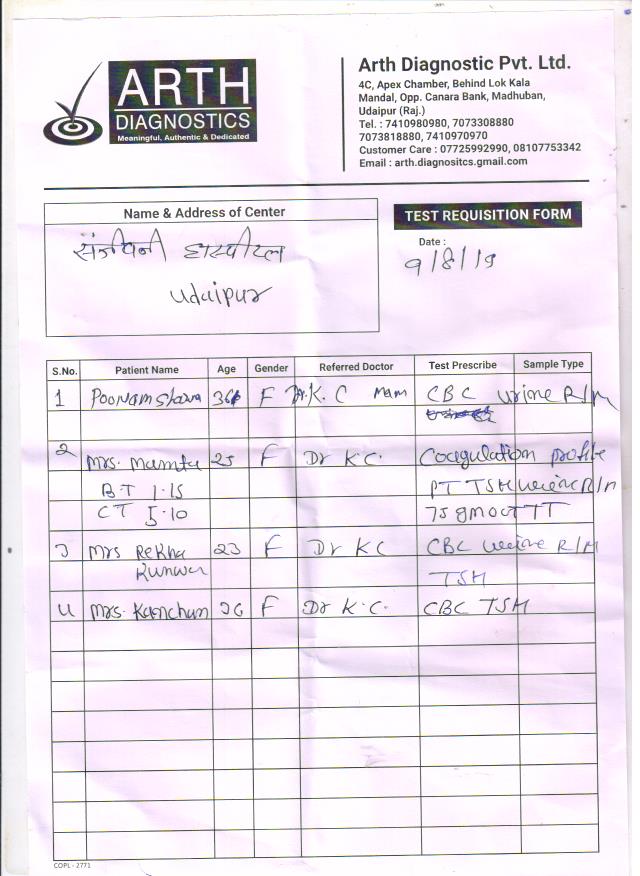 ARTH
DIAGNOSTICS
Meaningful, Authentic & Dedicated
Arth Diagnostic Pvt. Ltd.
4C, Apex Chamber, Behind Lok Kala
Mandal, Opp. Canara Bank, Madhuban,
Udaipur (Raj.)
Tel. : 7410980980, 7073308880
7073818880, 7410970970
Customer Care : 07725992990, 08107753342
Email : arth.diagnositcs.gmail.com
Name & Address of Center
संजीवनी हास्पीटल
Udaipur
TEST REQUISITION FORM
Date :
9/8/19
S.No. Patient Name Age Gender Referred Doctor Test Prescribe Sample Type
1 Poonam 36 F Dr. K. C mam CBC urine R/M
2 Mrs. Mamta 25 F Dr K.C. Coagulation profile
BT 1.15 PT TSH urine R/M
CT 5.10 75 gm
3 Mrs Rekha 23 F Dr KC CBC urine R/M
Kunwar TSH
4 Mrs. Kanchan 26 F Dr K.C. CBC TSH
COPL - 2771